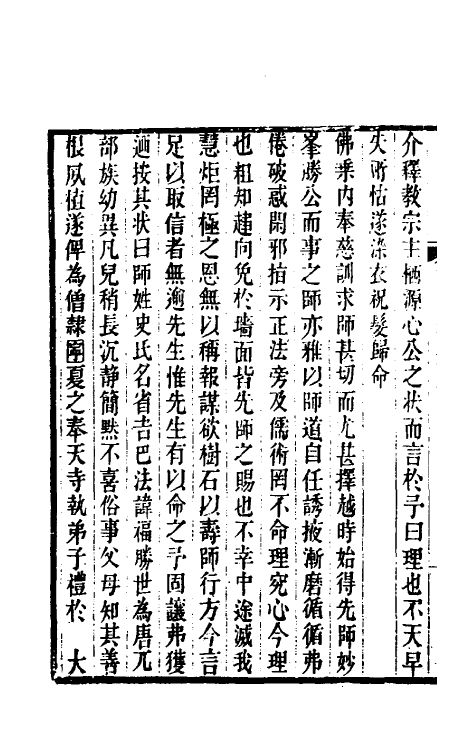 介釋教宗主栖源心公之狀而言於予曰理也不天早
失所怙遂染衣祝髮歸命
佛乘内奉慈訓求師甚切而尤甚擇越時始得先師妙
峯勝公而事之師亦雅以師道自任誘掖漸磨循循弗
倦破惑閑邪指示正法旁及儒術罔不命理究心今理
也粗知趨向免於墻面皆先師之賜也不幸中途滅我
慧炬罔極之恩無以稱報謀欲樹石以壽師行方今言
足以取信者無逾先生惟先生有以命之予固讓弗獲
迺按其狀曰師姓史氏名省吉巴法諱福勝世為唐兀
部族幼異凡兒稍長沉静簡黙不喜俗事父母知其善
根夙植遂俾為僧隸寧夏之奉天寺執弟子禮於 大